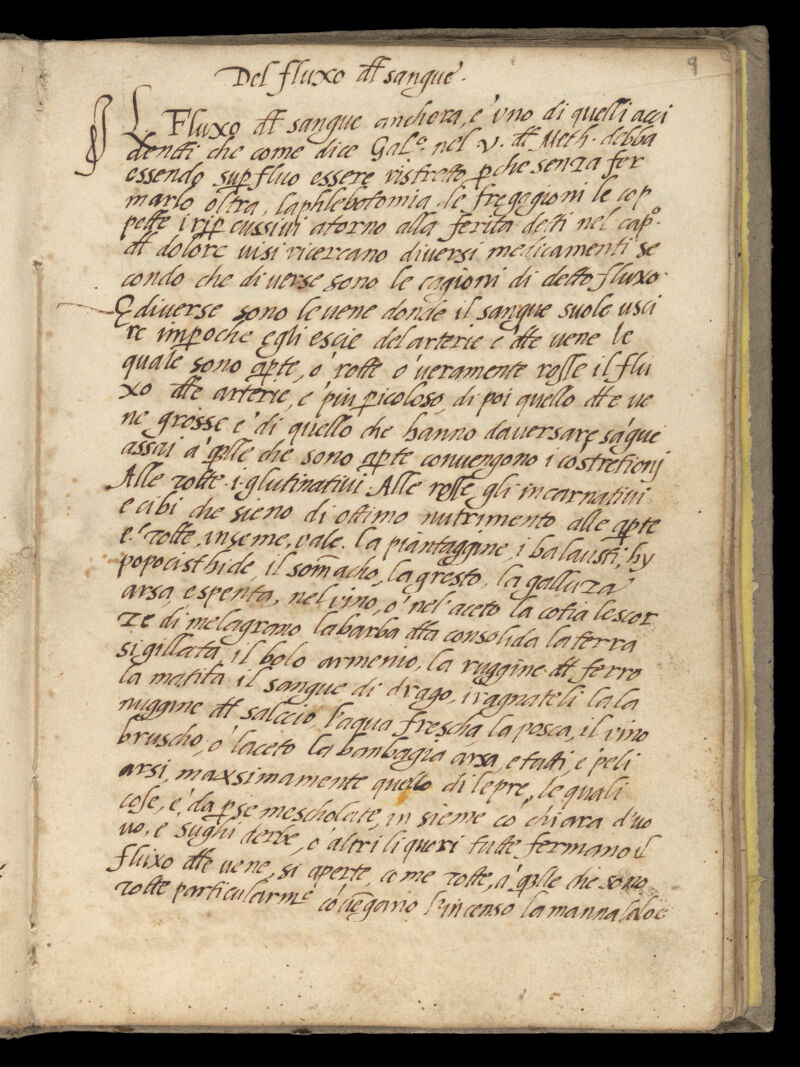 9
Del fluxo dll sangue.
Il Fluxo dll sangue anchora, e' uno di quelli acci
dentti che come dice Galº. nel v. dll Meth. debba
essendo supfluo essere ristretto pche senza fer
marlo oltra, la phlebotomia, le fregagioni le cop
pette i ripcussivi atorno alla ferita detti nel capº.
dll dolore visi ricercano diversi medicamenti se
condo che diverse sono le cagioni di detto fluxo.
E diverse sono le vene donde il sangue suole usci
re impoche egli escie del arterie e dlle vene le
quale sono apte, o' rotte o' veramente rosse il flu
xo dlle arterie, e' piu picoloso, di poi quello dlle ve
ne grosse e' di quello che hanno da versare sāgue
assai a' qlle che sono apte convengono i cōstretionj
Alle rotte .i. glutinativi. Alle rosse gli incarnativi
e cibi che sieno di ottimo nutrimento alle apte
e' rotte, inseme, vale. la piantaggine, i balausti, hy
popocisthide il somacho, lagresto, la galluza
arsa, e spenta, nel vino, o' nel' aceto la cotia le scor
ze di melagrano la barba dlla consolida la terra
sigillata il bolo armenio, la ruggine dll ferro
la matita il sangue di drago, i ragnateli la la
nuggine dll salcio, l'aqua frescha la posca, il vino
bruscho, o' laceto la banbagia arsa, e tutti, e' peli
arsi, maxsimamente quello di lepre, le quali
cose, e' da pse mescholate, in sieme cō chiara d'uo
vo, e sughi derbe, o' altri liqueri tutte fermano il
fluxo dlle vene, si aperte, come rotte, a' qlle che sono
rotte particularmᵉ cōvēgano l'incenso la manna laloe